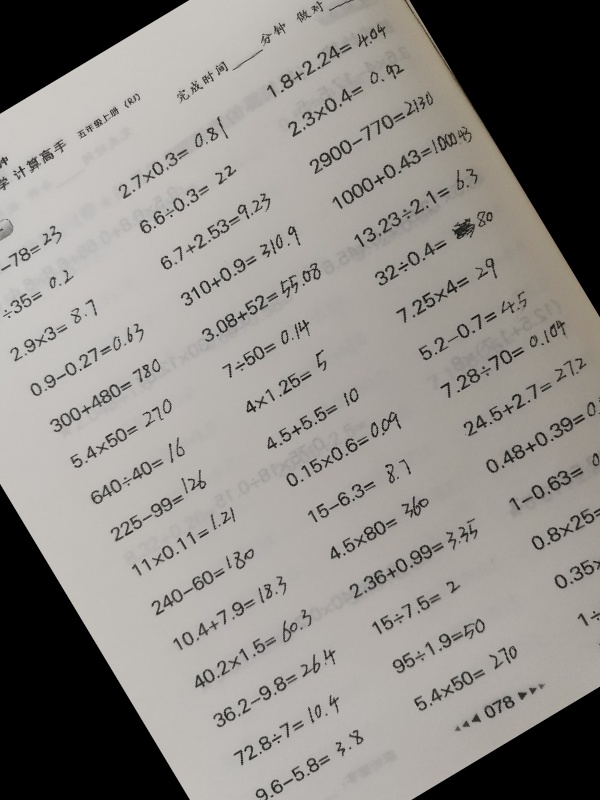 完成时间____分钟 做对
学 计算高手 五年级上册（RJ）
−78=23
÷35= 0.2
2.9×3= 8.7
0.9−0.27=0.63
300+480=780
5.4×50= 270
640÷40= 16
225−99=126
11×0.11=1.21
240−60=180
10.4+7.9=18.3
40.2×1.5= 60.3
36.2−9.8=26.4
72.8÷7= 10.4
9.6−5.8= 3.8
2.7×0.3= 0.81
6.6÷0.3= 22
6.7+2.53=9.23
310+0.9= 310.9
3.08+52=55.08
7÷50= 0.14
4×1.25= 5
4.5+5.5= 10
0.15×0.6=0.09
15−6.3= 8.7
4.5×80= 360
2.36+0.99=3.35
15÷7.5= 2
95÷1.9=50
5.4×50= 270
1.8+2.24= 4.04
2.3×0.4= 0.92
2900−770=2130
1000+0.43=1000.43
13.23÷2.1= 6.3
32÷0.4= 80
7.25×4= 29
5.2−0.7= 4.5
7.28÷70= 0.104
24.5+2.7= 27.2
0.48+0.39=0.
1−0.63= 0.
0.8×25=
0.35×
1÷
078